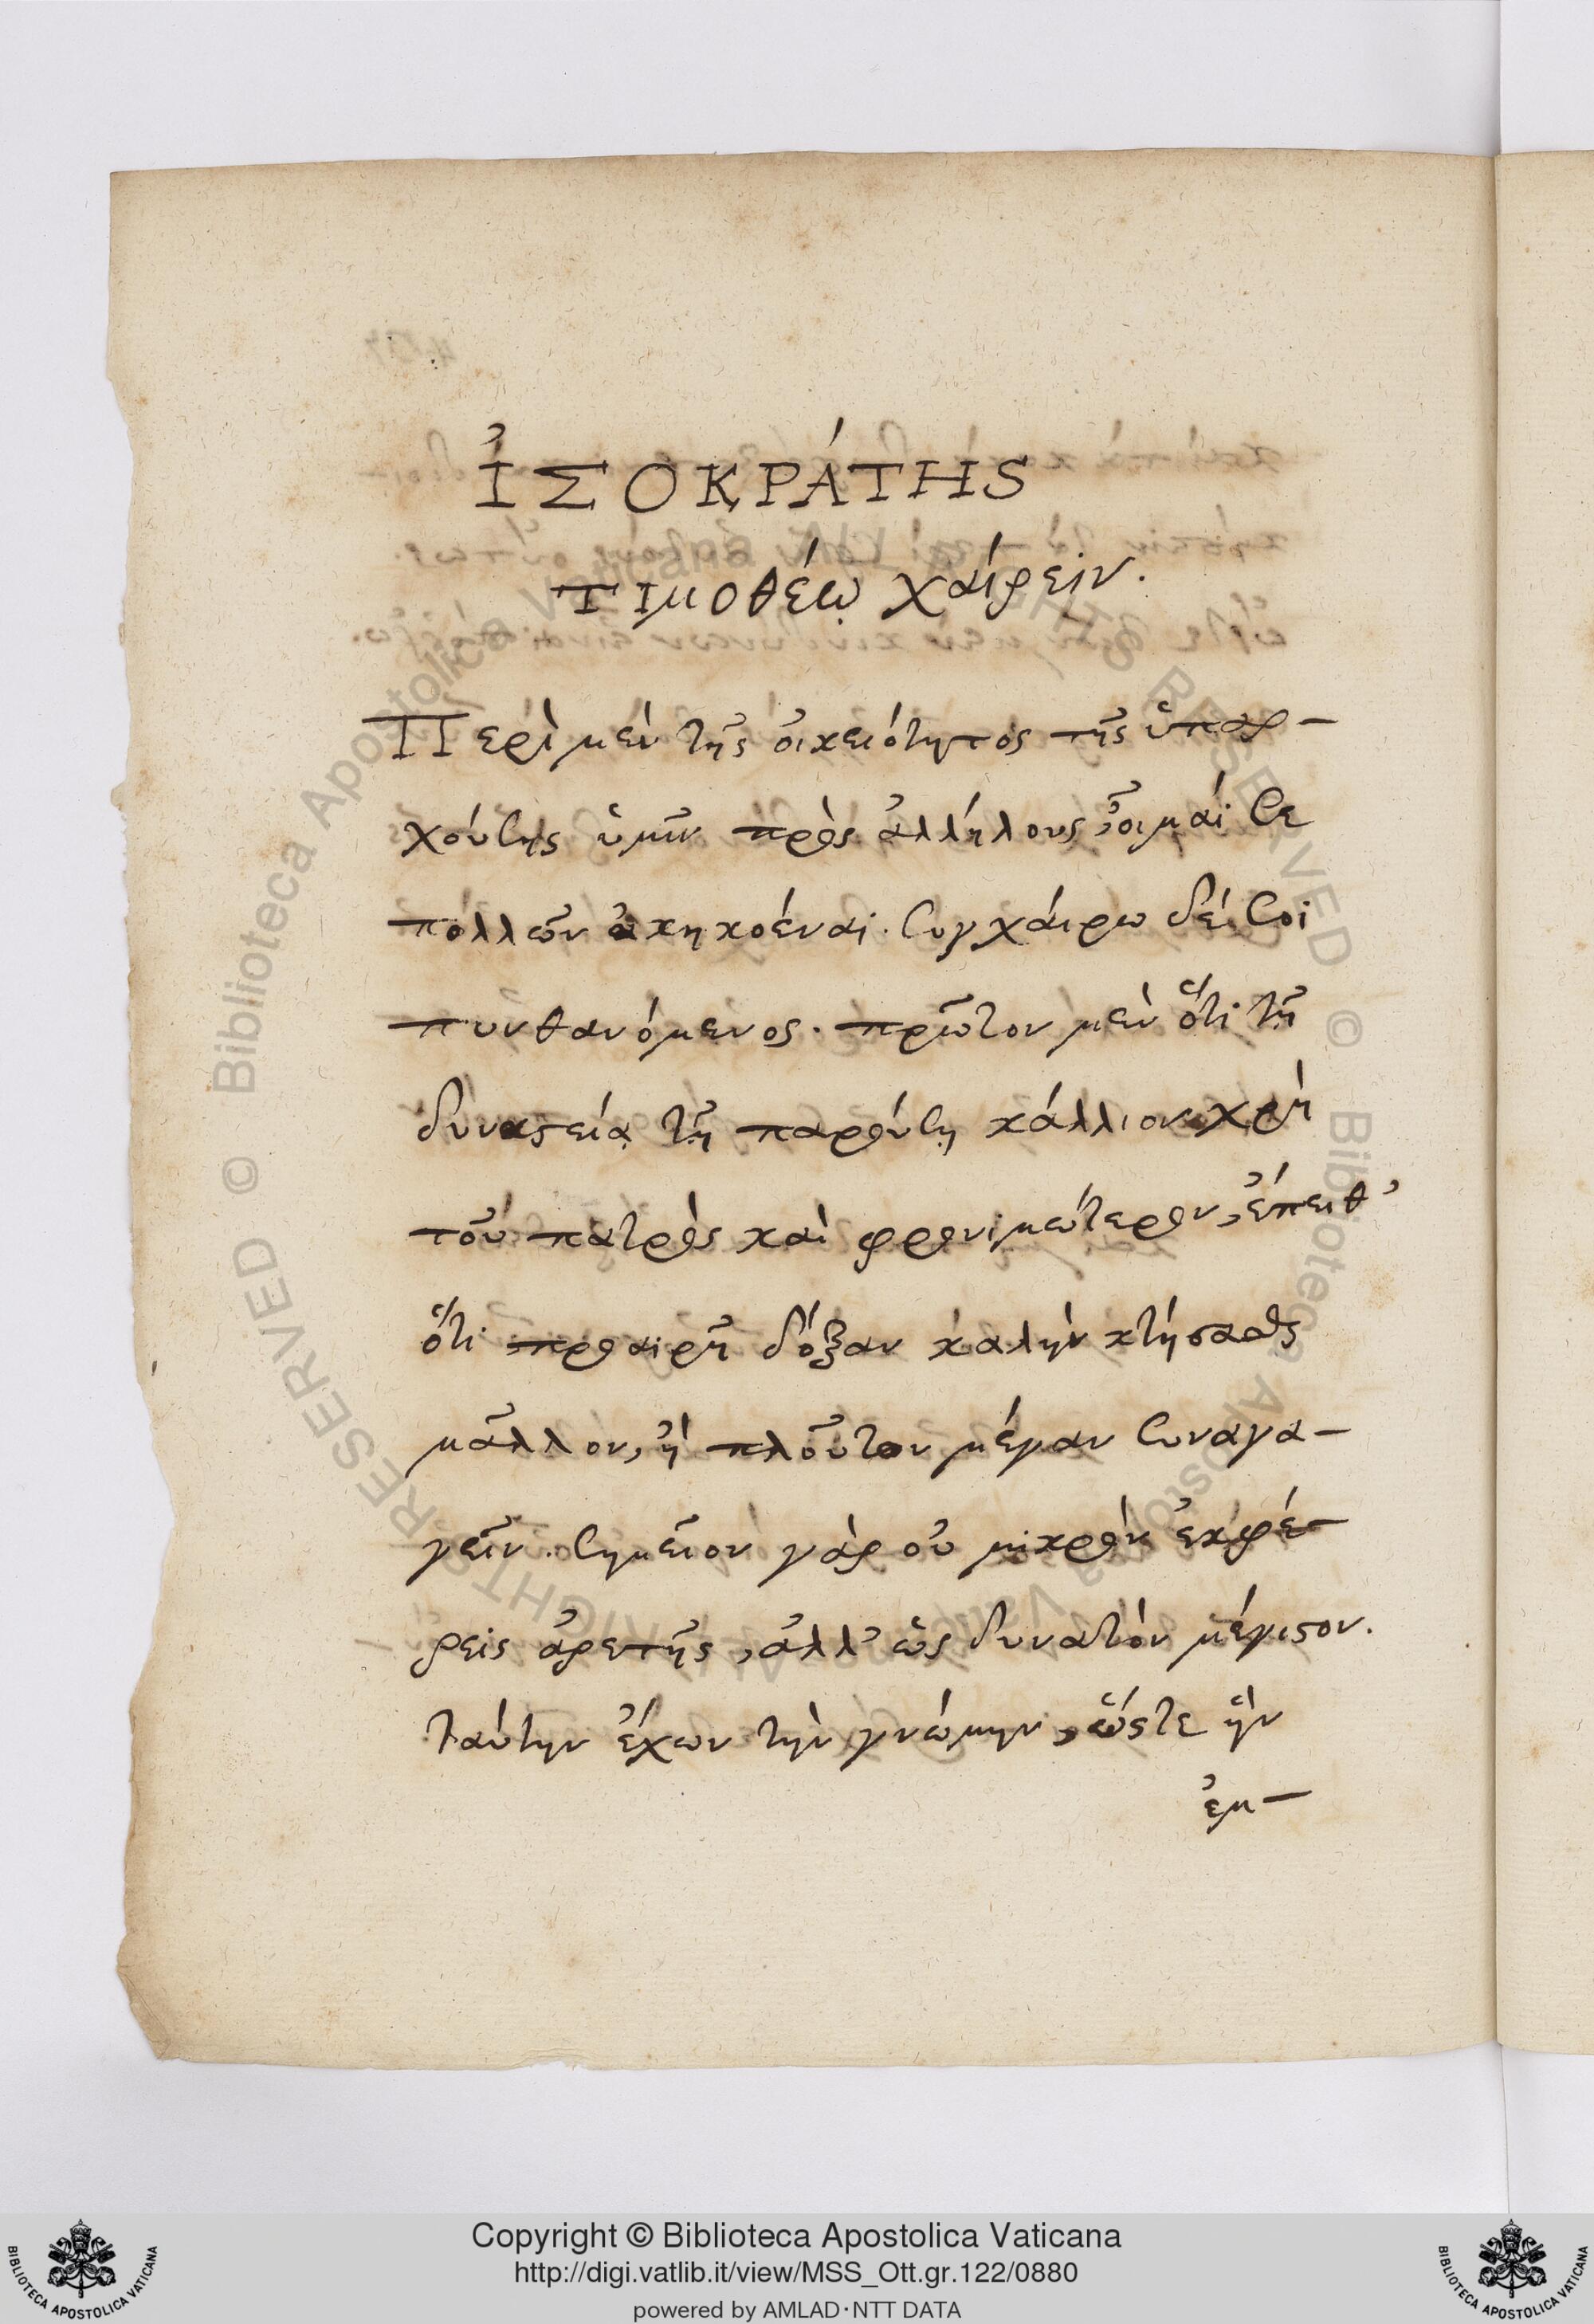 ἸΣΟΚΡΆΤΗS
Τιμοθέῳ χαίρειν.
Περὶ μὲν τῆς οἰκειότητος τῆς ὑπαρ-
χούσης ὑμῖν πρὸς ἀλλήλους, οἶμαί σε
πολλῶν ἀκηκοέναι. συγχαίρω δέ σοι
πυνθανόμενος. πρῶτον μὲν ὅτι τῇ
δυναστείᾳ τῇ παρούσῃ κάλλιον χρῇ
τοῦ πατρὸς καὶ φρονιμώτερον, ἔπειθ᾽
ὅτι προαιρῇ δόξαν καλὴν κτήσασθαι
μᾶλλον, ἢ πλοῦτον μέγαν συναγα-
γεῖν. σημεῖον γὰρ οὐ μικρὸν ἐκφέ-
ρεις ἀρετῆς, ἀλλ᾽ ὡς δυνατὸν μέγιστον.
ταύτην ἔχων τὴν γνώμην, ὥστε ἢν
ἐμ-
Copyright © Biblioteca Apostolica Vaticana
http://digi.vatlib.it/view/MSS_Ott.gr.122/0880
powered by AMLAD·NTT DATA
BIBLIOTECA APOSTOLICA VATICANA
BIBLIOTECA APOSTOLICA VATICANA